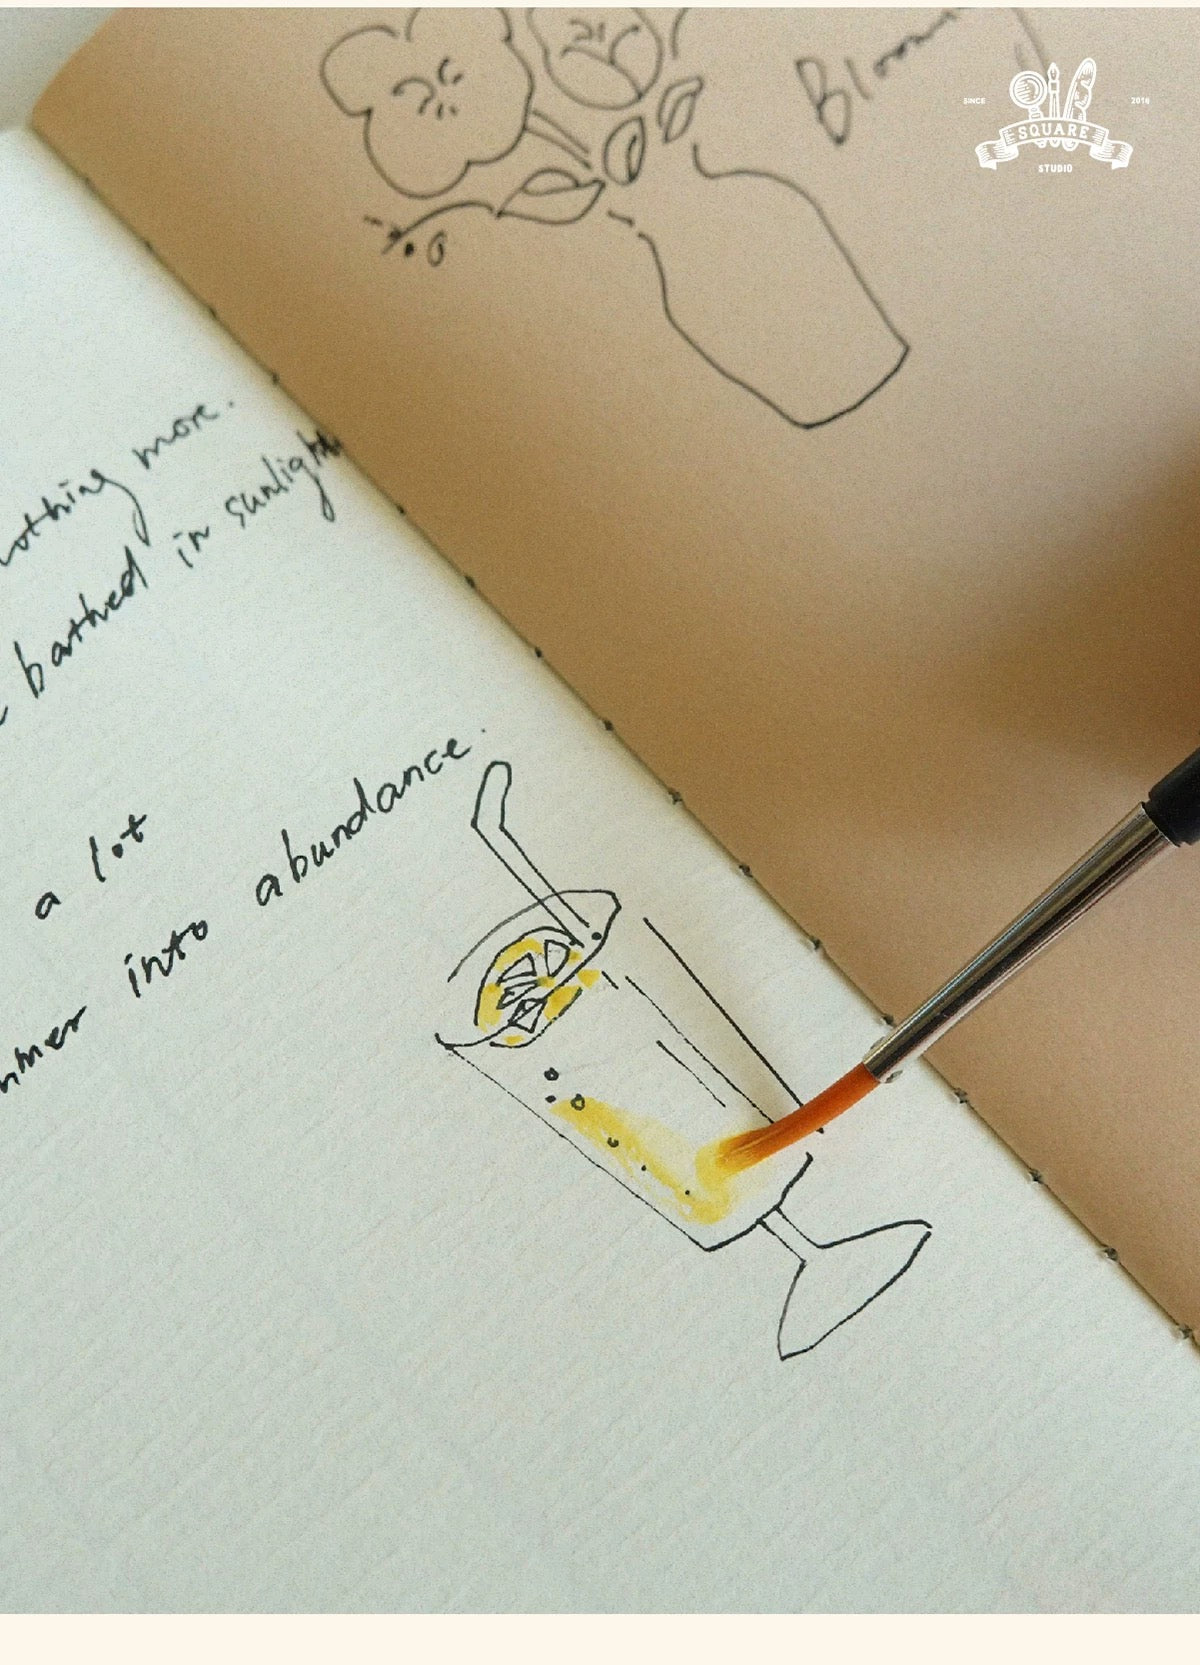 Bloom
SINCE
2016
SQUARE
STUDIO
nothing more.
bathed in sunlight
a lot
into abundance.